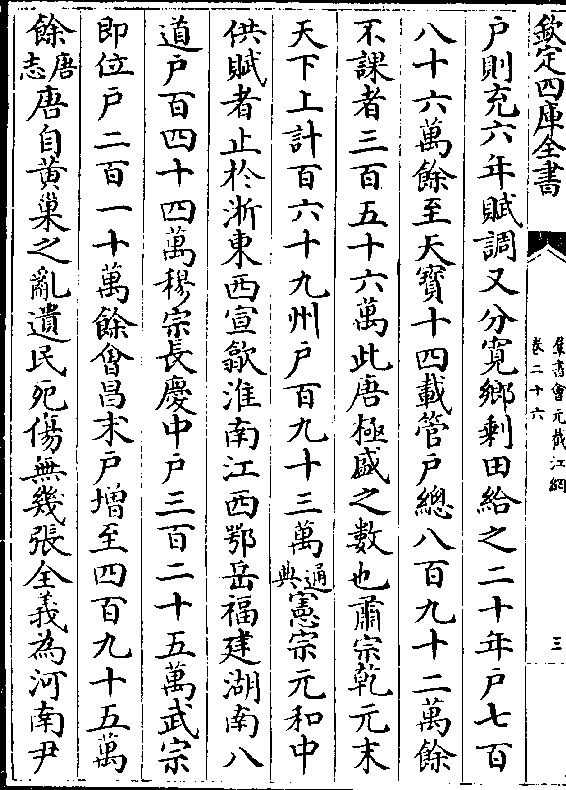 欽定四庫全書
羣書會元截江網
卷二十六
三
戶則充六年賦調又分寛鄉剩田給之二十年戶七百
八十六萬餘至天寳十四載管戶總八百九十二萬餘
不課者三百五十六萬此唐極盛之數也肅宗乾元末
天下上計百六十九州戶百九十三萬通典憲宗元和中
供賦者止於浙東西宣歙淮南江西鄂岳福建湖南八
道戶百四十四萬穆宗長慶中戶三百二十五萬武宗
即位戶二百一十萬餘會昌末戶增至四百九十五萬
餘唐志唐自黄巢之亂遺民死傷無幾張全義為河南尹